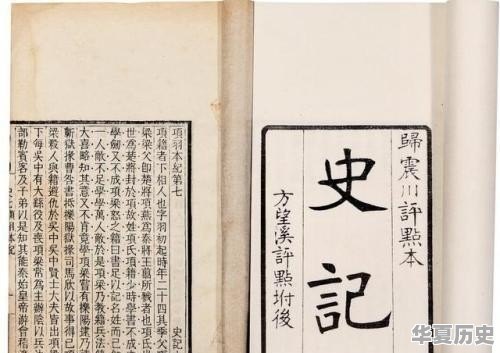 歸震川評點本
史記
方望溪評點坿後
項羽本紀第七
史記
項籍者下相人也字羽初起時年二十四其季父項
梁梁父即楚將項燕為秦將王翦所戮者也項氏世
世為楚將封於項故姓項氏項籍少時學書不成去
學劍又不成項梁怒之籍曰書足以記名姓而已劍
一人敵不足學學萬人敵於是項梁乃教籍兵法籍
大喜略知其意又不肯竟學項梁嘗有櫟陽逮乃請
蘄獄掾曹咎書抵櫟陽獄掾司馬欣以故事得已項
梁殺人與籍避仇於吳中吳中賢士大夫皆出項梁
下每吳中有大繇役及喪項梁常為主辦陰以兵法
部勒賓客及子弟以是知其能秦始皇帝游會稽渡
华夏历史